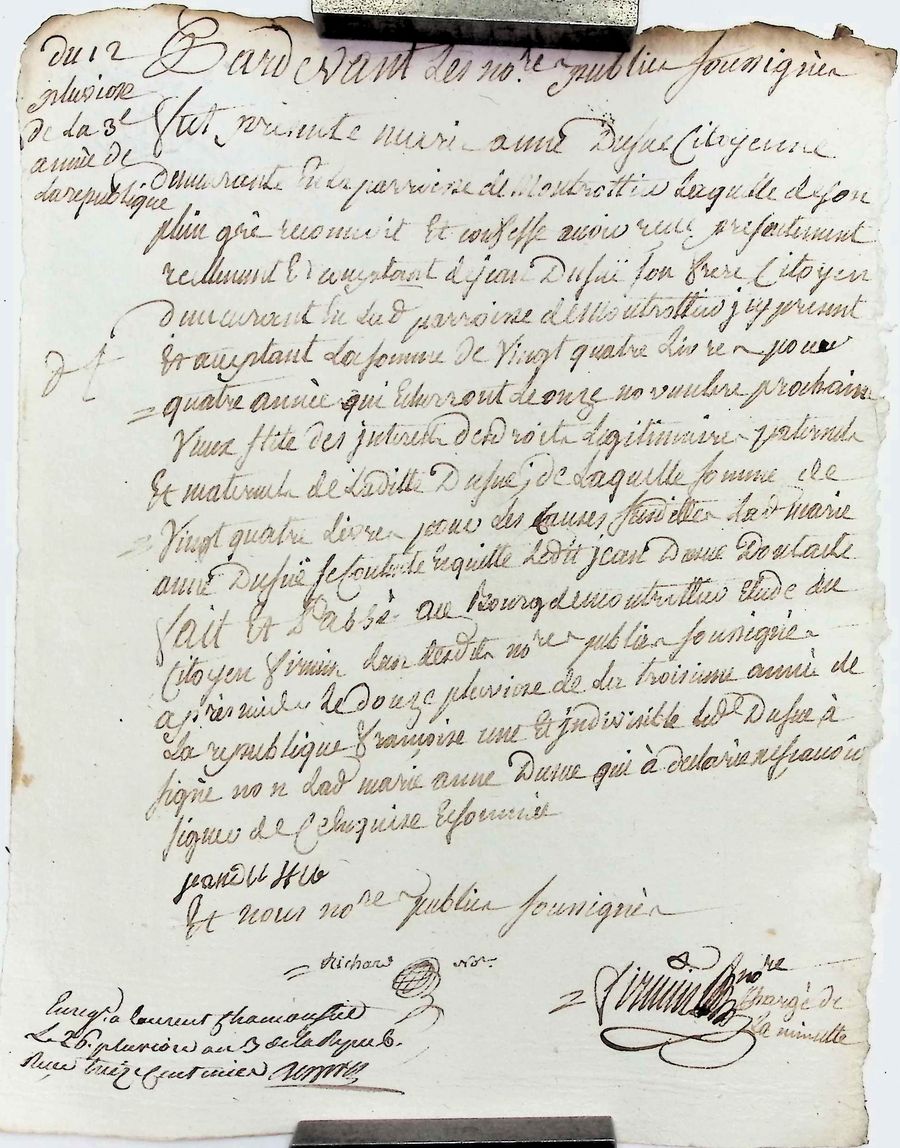 du 12
pluviose
de la 3e
année de
la republique
Pardevant Les nore publics soussignés
fut presente marie anne Dufué Citoyenne
demeurante En la parroisse de Montrottier Laquelle de son
plein gré reconnoit Et confesse avoir recu presentement
reellement Et comptant de jean Dufué son frere Citoyen
demeurant En Lad parroisse de Montrottier jcy present
Et acceptant La somme de Vingt quatre Livres pour
quatre année qui Echerront de onze novembre prochain
Vieux stile des jnterests des droits Legitimaires paternels
Et maternels de Laditte Dufué, de Laquelle somme de
Vingt quatre Livres pour Les causes susdittes Lad marie
anne Dufué se Contente quitte Ledit jean Dufué Dont acte
fait Et Passé au Bourg de montrottier Etude du
Citoyen firmin L'un desdits nores publics soussignés
après midi Le douze pluviose de la troisieme année de
La republique francoise une Et jndivisible Led Dufué à
signé non Lad marie anne Dufué qui à déclaré ne scavoir
signer de Ce Enquise Et sommée
jean
Et nous nore publics soussignés
Richard nore
firmin nore
chargé de
La minutte
Enreg. a laurent Chamousset
Le 26 pluviose an 3 de la Repub.
Recu centimes